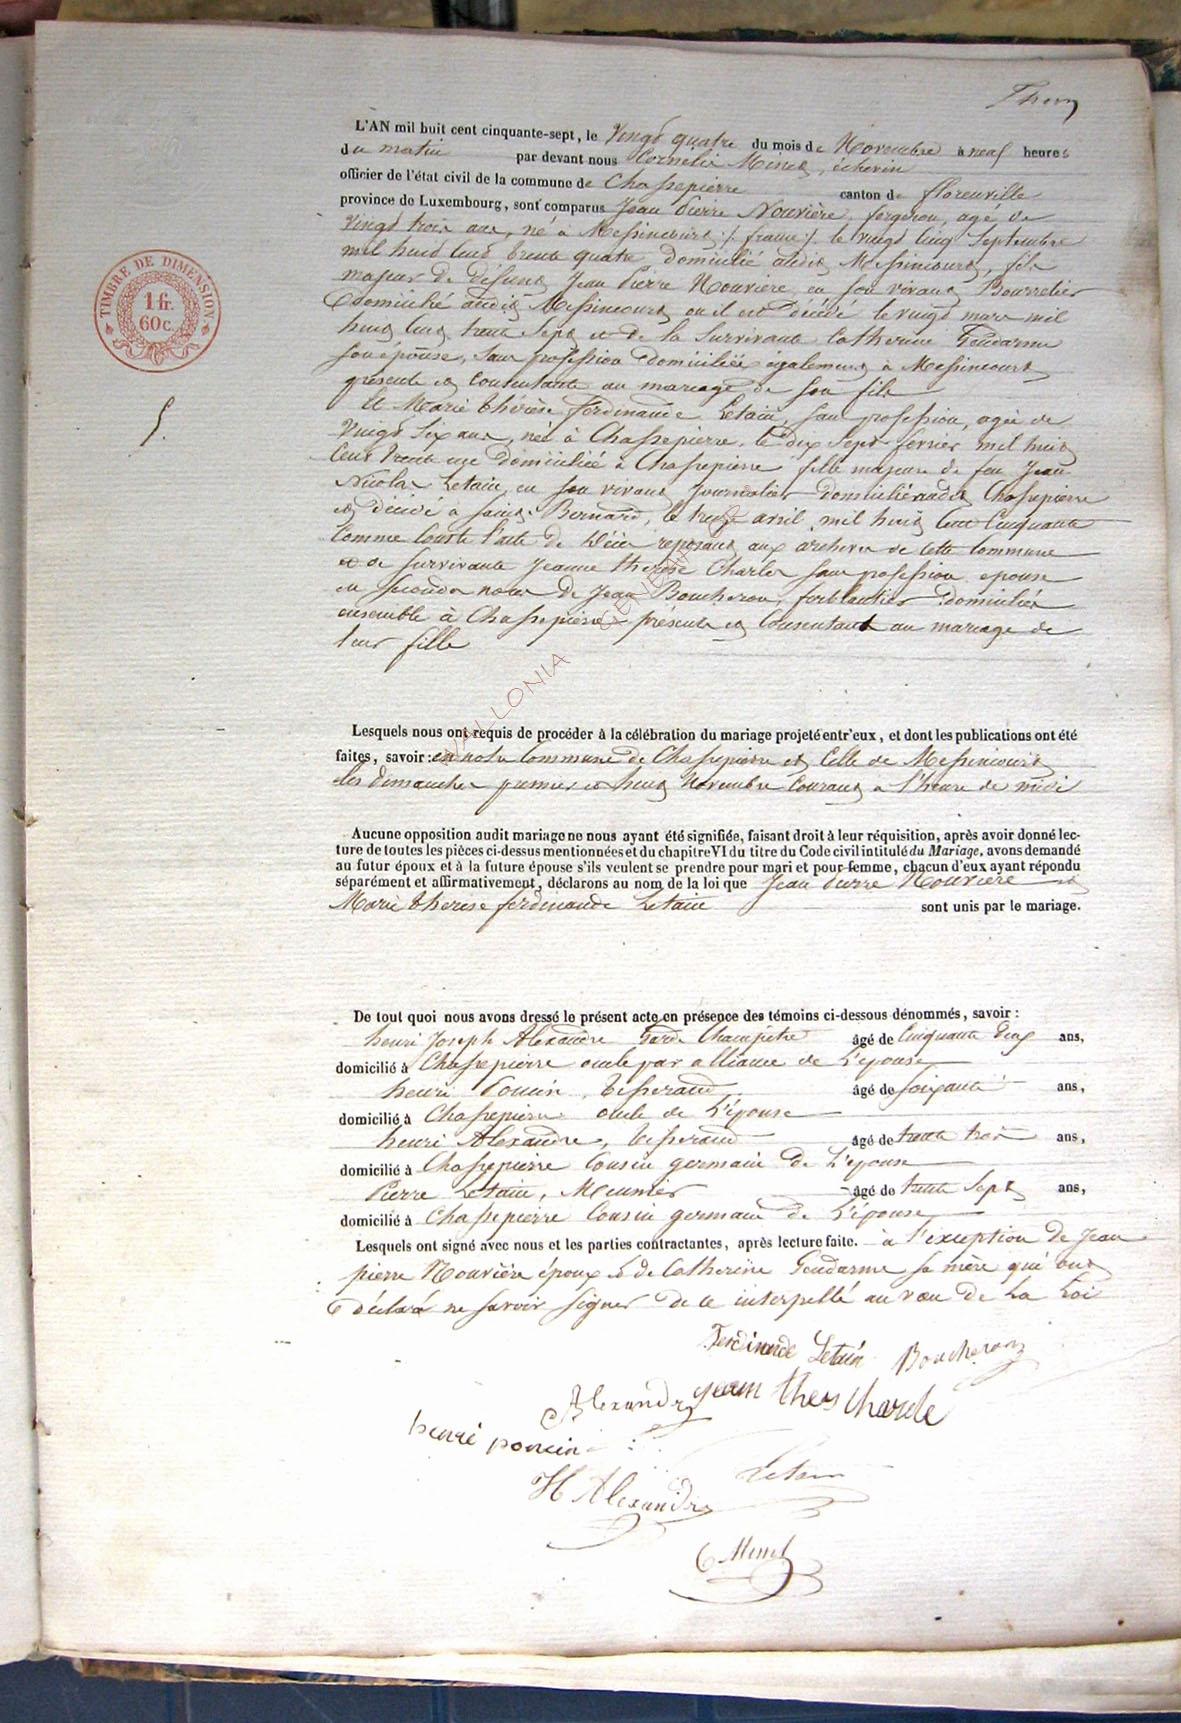 L'AN mil huit cent cinquante-sept, le vingt quatre du mois de Novembre à neuf heures
du matin par devant nous Cornelis Minet, échevin
officier de l'état civil de la commune de Chassepierre canton de florenville
province de Luxembourg, sont comparus Jean Pierre Nouvière, forgeron, agé de
vingt trois ans, né à Messincourt /. france /. le vingt cinq Septembre
mil huit cent trente quatre domicilié audit Messincourt, fils
majeur de défunt Jean Pierre Nouvière en son vivant Bourrelier
domicilié audit Messincourt ou il est décédé le vingt mars mil
huit cent trente sept et de la survivante Catherine Gendarme
son épouse, sans profession domiciliée également à Messincourt
présente et consentante au mariage de son fils
Et Marie thérèse ferdinande Letain, sans profession, agée de
vingt six ans, née à Chassepierre, le dix sept fevrier mil huit
cent trente une domiciliée à Chassepierre fille majeure de feu Jean
Nicolas Letain, en son vivant journalier domicilié audit Chassepierre
et décédé à saint Bernard, le treize avril mil huit cent cinquante
comme conste l'acte de décès reposant aux archives de cette commune
et de survivante Jeanne therese Charles sans profession epouse
en secondes noces de Jean Boucheron, ferblantier domiciliés
ensemble à Chassepierre présents et consentant au mariage de
leur fille
5.
TIMBRE DE DIMENSION
1 fr.
60 c.
WALLONIA
Lesquels nous ont requis de procéder à la célébration du mariage projeté entr'eux, et dont les publications ont été
faites, savoir : en notre commune de Chassepierre et celle de Messincourt
les dimanches premier et huit Novembre courant à l'heure de midi
Aucune opposition audit mariage ne nous ayant été signifiée, faisant droit à leur réquisition, après avoir donné lec-
ture de toutes les pièces ci-dessus mentionnées et du chapitre VI du titre du Code civil intitulé du Mariage, avons demandé
au futur époux et à la future épouse s'ils veulent se prendre pour mari et pour femme, chacun d'eux ayant répondu
séparément et affirmativement, déclarons au nom de la loi que Jean Pierre Nouvière et
Marie therese ferdinande Letain sont unis par le mariage.
De tout quoi nous avons dressé le présent acte en présence des témoins ci-dessous dénommés, savoir :
henri Joseph Alexandre Garde Champêtre âgé de cinquante cinq ans,
domicilié à Chassepierre oncle par alliance de l'épouse
henri Poncin, tisserand âgé de soixante ans,
domicilié à Chassepierre oncle de l'épouse
henri Alexandre, tisserand âgé de trente trois ans,
domicilié à Chassepierre cousin germain de l'épouse
Pierre Letain, Meunier âgé de trente sept ans,
domicilié à Chassepierre cousin germain de l'épouse
Lesquels ont signé avec nous et les parties contractantes, après lecture faite. à l'exception de Jean
pierre Nouvière époux et de Catherine Gendarme sa mère qui ont
déclaré ne savoir signer de ce interpellé au vœu de la Loi
Ferdinande Letain Boucheron
Alexandre jean theres Charle
henri poncin
Letain
H Alexandre
C Minet